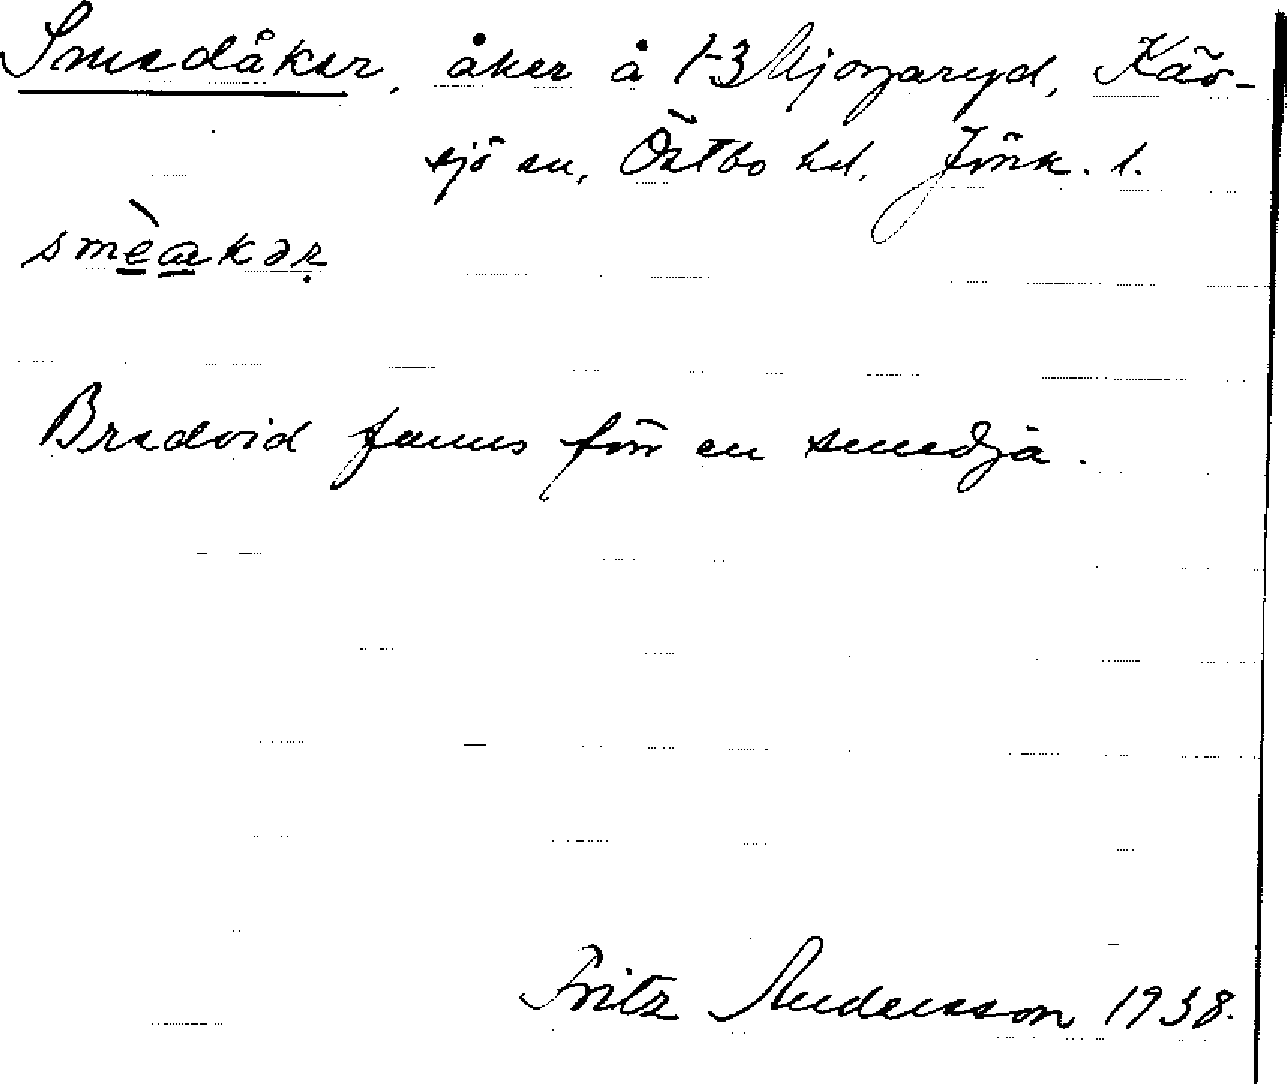 Smedåker, åker å 1-3 Mjogaryd, Käv-
sjö sn, Östbo hd, Jönk. l.
smèakəṛ
Bredvid fanns förr en smedja.
Fritz Andersson 1938.